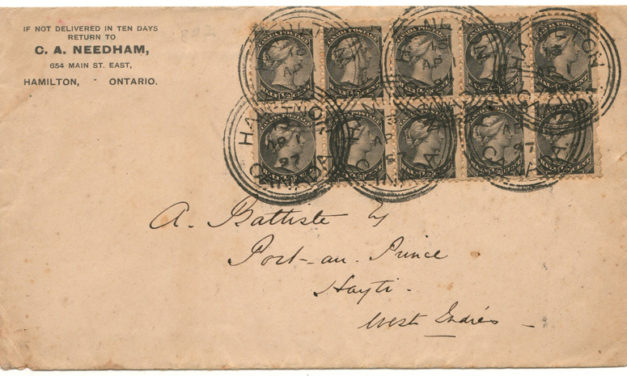 IF NOT DELIVERED IN TEN DAYS
RETURN TO
C. A. NEEDHAM,
654 MAIN ST. EAST,
HAMILTON, ONTARIO.
HAMILTON
AP 1
97
CANADA
A. Battiste Esq
Port-au-Prince
Hayti.
West Indies